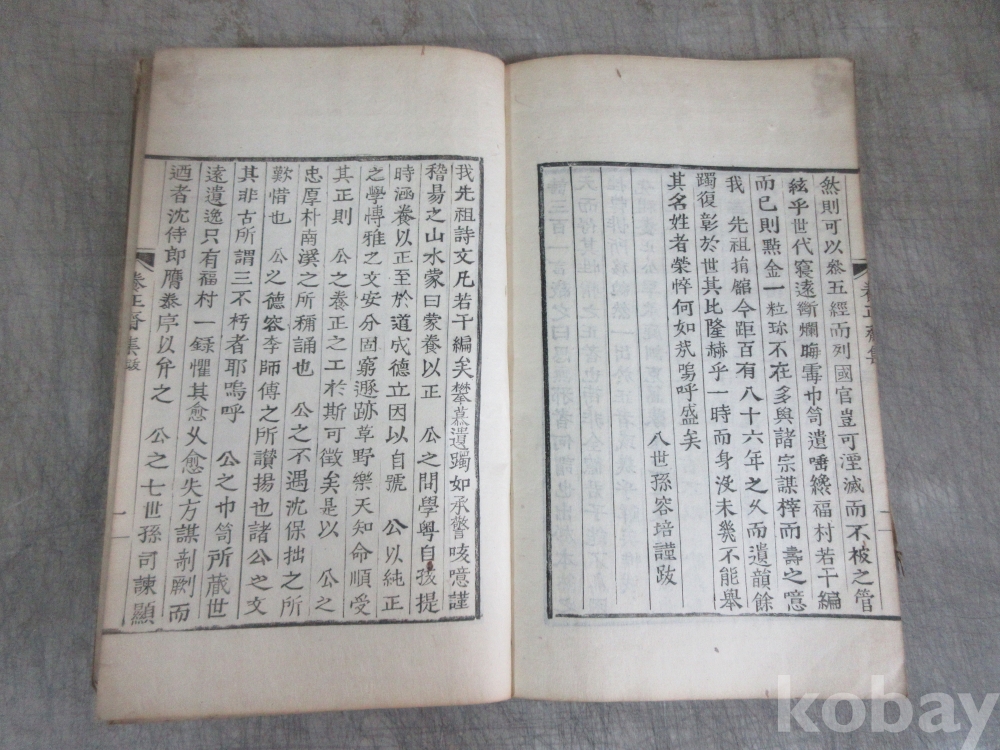 然則可以參五經而列國官豈可湮滅而不被之管
絃乎世代寢遠斷爛晦霉巾笥遺䌓福村若干編
而已則點金一粒珎不在多與諸宗謀梓而壽之噫
我 先祖捐館今距百有八十六年之久而遺韻餘
躅復彰於世其比隆赫乎一時而身沒未幾不能舉
其名姓者榮悴何如㢤嗚呼盛矣
八世孫容培謹跋
我先祖詩文凡若干編矣攀慕遺躅如承謦咳噫謹
稽昜之山水蒙曰蒙養以正 公之問學粤自孩提
時涵養以正至於道成德立因以自號 公以純正
之學博雅之文安分固窮遯跡草野樂天知命順受
其正則 公之養正之工於斯可徵矣是以 公之
忠厚朴南溪之所稱誦也 公之不遇沈保拙之所
歎惜也 公之德容李師傅之所讃揚也諸公之文
其非古所謂三不朽者耶嗚呼 公之巾笥所蔵世
遠遺逸只有福村一録懼其愈久愈失方謀剞劂而
廼者沈侍郎膺泰序以弁之 公之七世孫司諫顯
養正齋集 跋 一
kobay